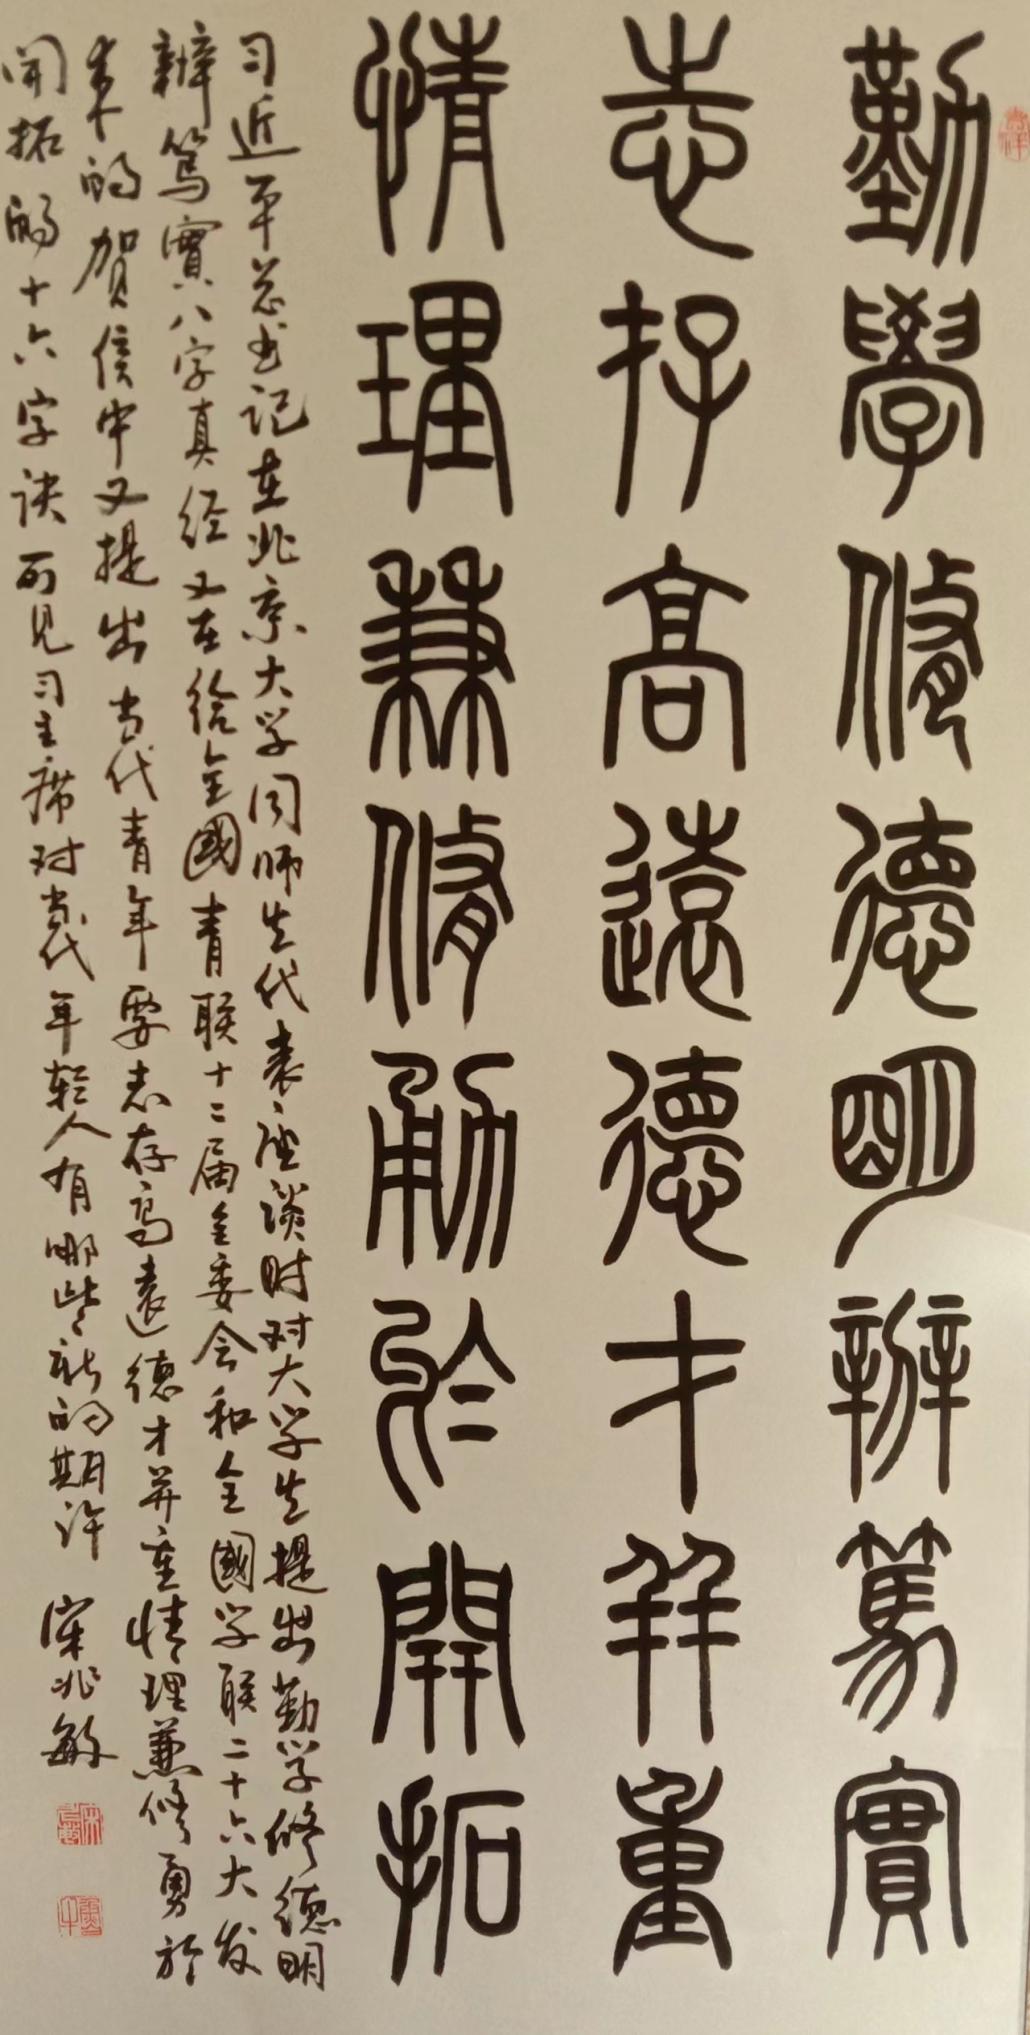 勤學修德明辨篤實
志存高遠德才并重
情理兼修勇於開拓
习近平总书记在北京大学同师生代表座谈时对大学生提出勤学修德明
辨篤實八字真经又在给全國青联十二届全委会和全國学联二十六大发
来的贺信中又提出当代青年要志存高遠德才并重情理兼修勇於
開拓的十六字诀可见习主席对当代年轻人有哪些新的期许
宋兆敏